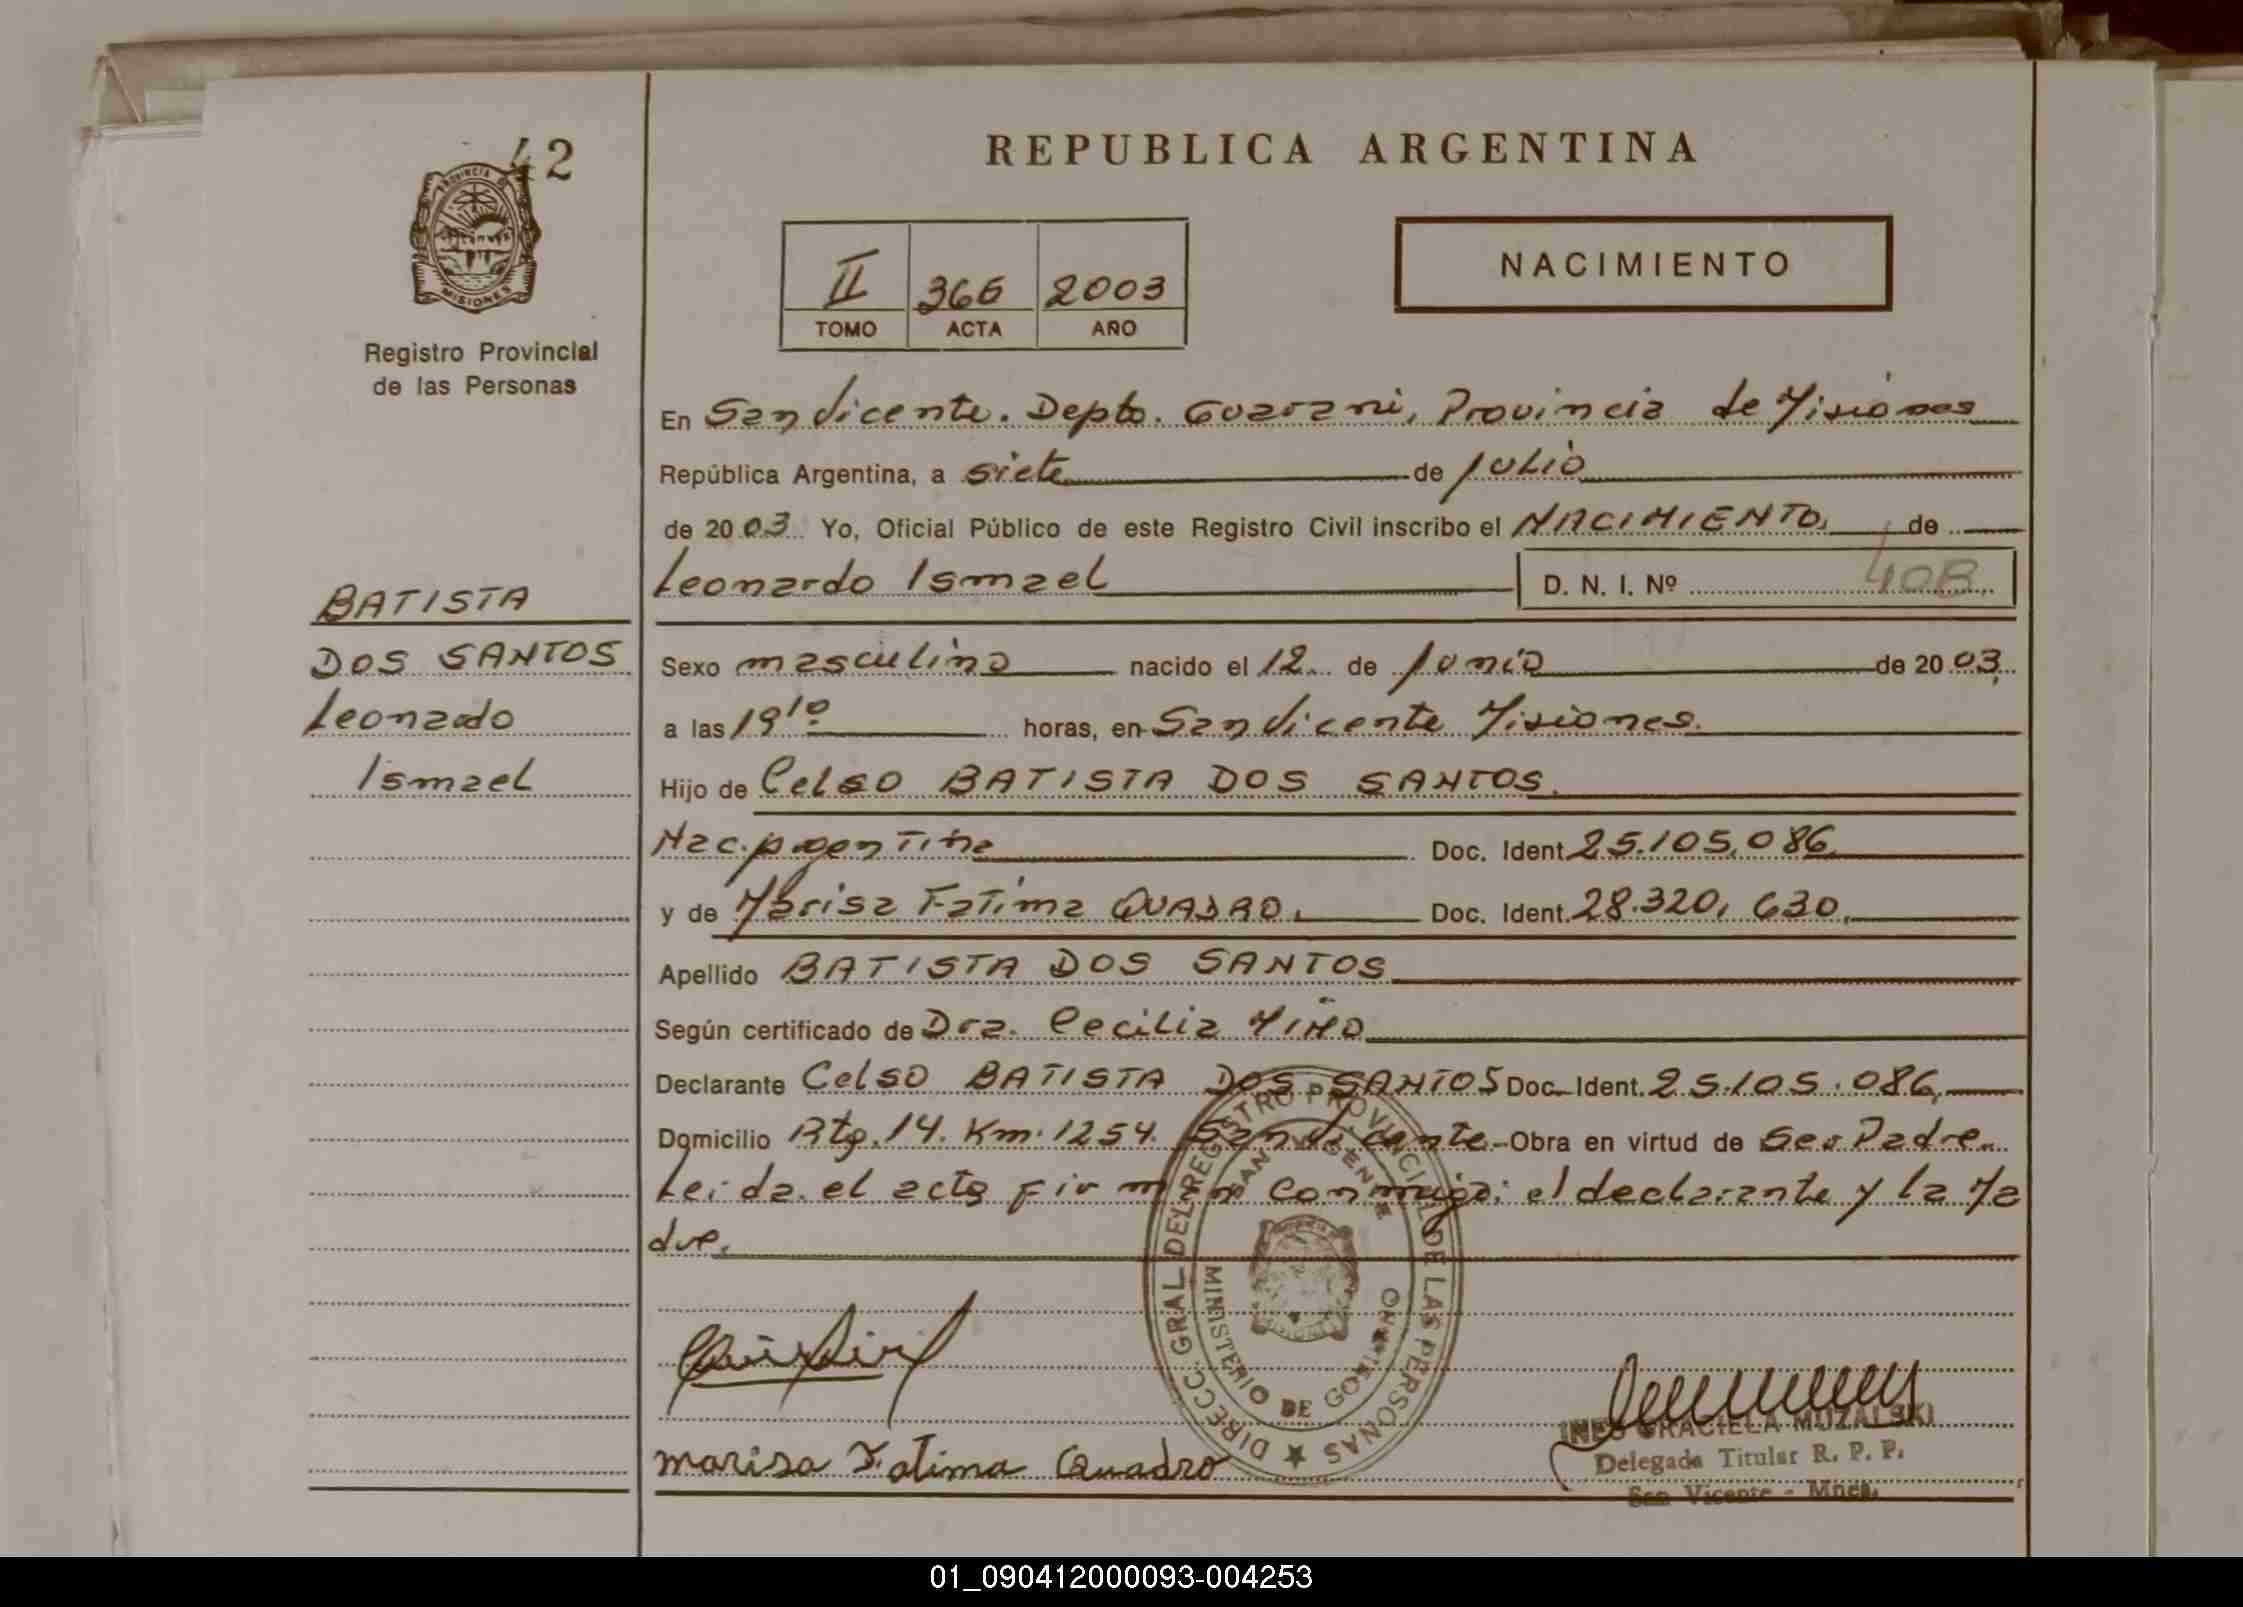 42
PROVINCIA DE
MISIONES
Registro Provincial
de las Personas
BATISTA
DOS SANTOS
Leonardo
Ismael
REPUBLICA ARGENTINA
II 366 2003
TOMO ACTA AÑO
NACIMIENTO
En San Vicente. Depto. Guarani, Provincia de Misiones
República Argentina, a siete de julio
de 2003 Yo, Oficial Público de este Registro Civil inscribo el NACIMIENTO, de
Leonardo Ismael D. N. I. Nº 408
Sexo masculino nacido el 12 de junio de 2003,
a las 19 10 horas, en San Vicente Misiones.
Hijo de Celso BATISTA DOS SANTOS.
Nac. Argentina Doc. Ident. 25.105.086,
y de Marisa Fatima QUADRO, Doc. Ident. 28.320,630,
Apellido BATISTA DOS SANTOS
Según certificado de Dra. Cecilia MIÑO
Declarante Celso BATISTA DOS SANTOS Doc. Ident. 25.105.086,
Domicilio Rta. 14. Km. 1254. San Vicente - Obra en virtud de Ser Padre.
Leida el acta firman conmigo: el declarante y la Ma
dre.
DIRECC. GRAL DEL REGISTRO PROVINCIAL DE LAS PERSONAS
SAN VICENTE
MINISTERIO DE GOBIERNO
Marisa Fatima Quadro
INES GRACIELA MUZALSKI
Delegada Titular R. P. P.
San Vicente - Mnes.
01_090412000093-004253